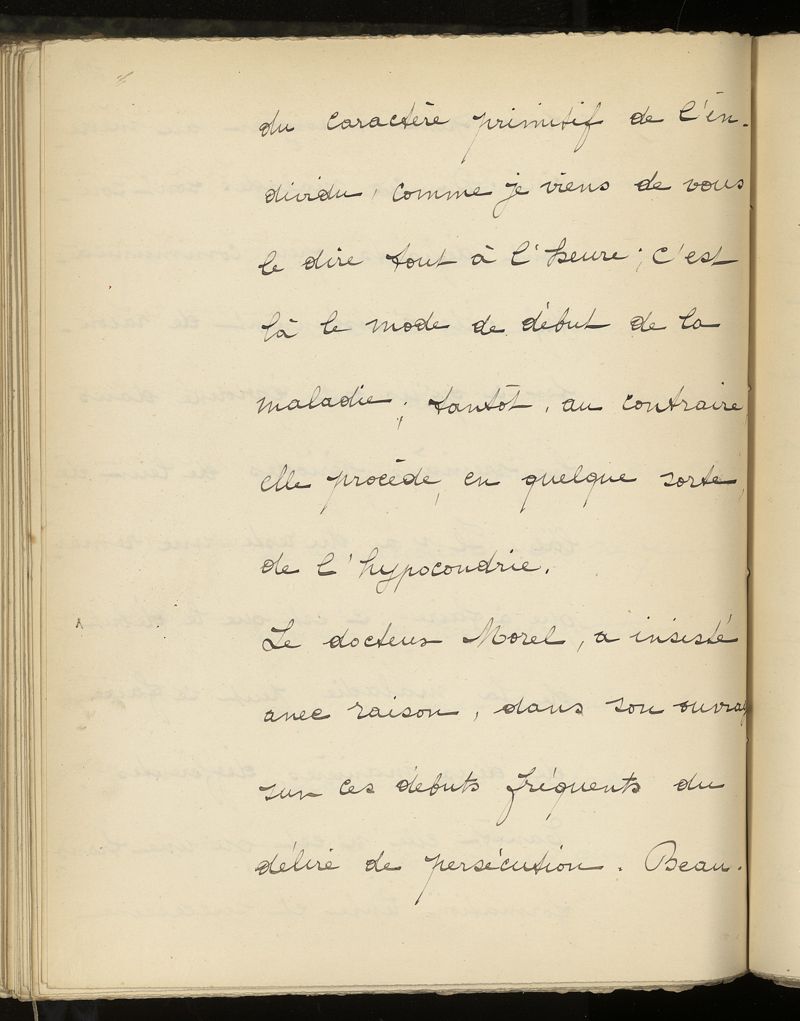 du caractère primitif de l'in-
dividu, comme je viens de vous
le dire tout à l'heure ; c'est
là le mode de début de la
maladie ; tantôt, au contraire,
elle procède, en quelque sorte,
de l'hypocondrie.
Le docteur Morel, a insisté
avec raison, dans son ouvrag
sur ces débuts fréquents du
délire de persécution. Beau-